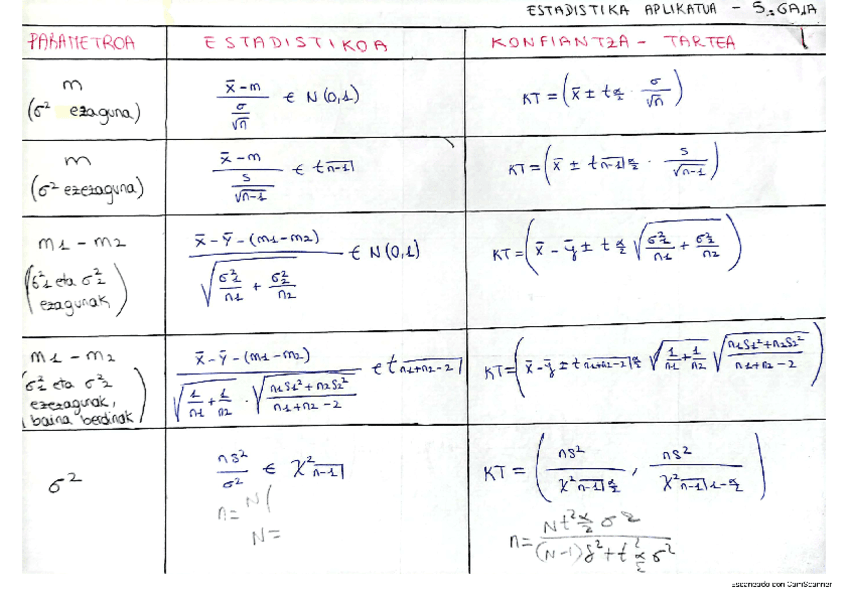 ESTADISTIKA APLIKATUA - 5. GAIA
PARAMETROA ESTADISTIKOA KONFIANTZA - TARTEA
m
(σ² ezaguna)
(x̄ - m) / (σ/√n) ∈ N(0,1)
KT = (x̄ ± t α/2 · σ/√n)
m
(σ² ezezaguna)
(x̄ - m) / (s/√(n-1)) ∈ t n-1
KT = (x̄ ± t n-1 α/2 · s/√(n-1))
m1 - m2
(σ²1 eta σ²2
ezagunak)
(x̄ - ȳ - (m1-m2)) / √(σ²1/n1 + σ²2/n2) ∈ N(0,1)
KT = (x̄ - ȳ ± t α/2 √(σ²1/n1 + σ²2/n2))
m1 - m2
(σ²1 eta σ²2
ezezagunak,
baina berdinak)
(x̄ - ȳ - (m1-m2)) / (√(1/n1 + 1/n2) · √((n1s1² + n2s2²)/(n1+n2-2))) ∈ t n1+n2-2
KT = (x̄ - ȳ ± t n1+n2-2 α/2 √(1/n1 + 1/n2) √((n1s1² + n2s2²)/(n1+n2-2)))
σ²
ns²/σ² ∈ χ² n-1
KT = (ns²/χ² n-1 α/2 , ns²/χ² n-1 1-α/2)
n = N(
N =
n = N t² α/2 σ² / ((N-1) δ² + t² α/2 σ²)
Escaneado con CamScanner